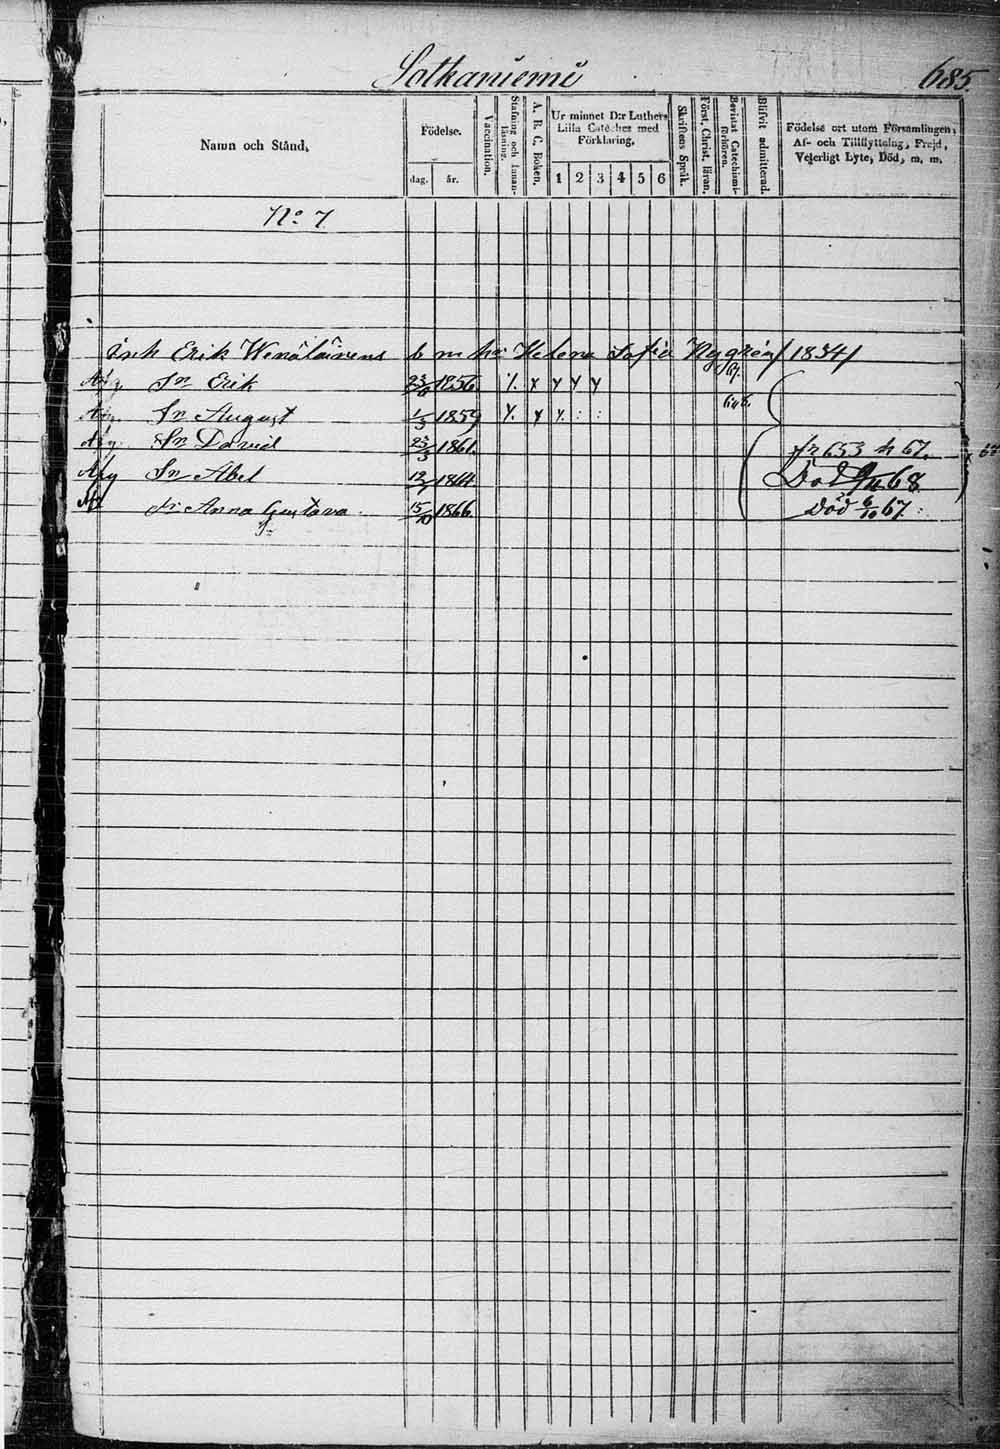 Sotkaniemi 685.
Namn och Stånd,
Födelse.
dag. år.
Vaccination.
Stafning och Innan-läsning.
A. B. C. Boken.
Ur minnet D:r Luthers Lilla Cateches med Förklaring,
1 2 3 4 5 6
Skriftens Språk.
Först. Christ. läran.
Bevistat Catechismi-förhören.
Blifvit admitterad.
Födelse ort utom Församlingen,
Af- och Tillflyttning, Frejd,
Vejerligt Lyte, Död, m. m.
No 7
Erik Wenäläinens b m hu Helena Sofia Nygrén / 1834 /
Sn Erik 23/6 1856 x x x x x 67.
Sn August 1/3 1859 x. x x. : :
Sn David 23/3 1861. fr 653 h 67.
Afg Sn Abel 12/7 1864 Död 68
Anna Gustava 15/10 1866. Död 6/10 67.